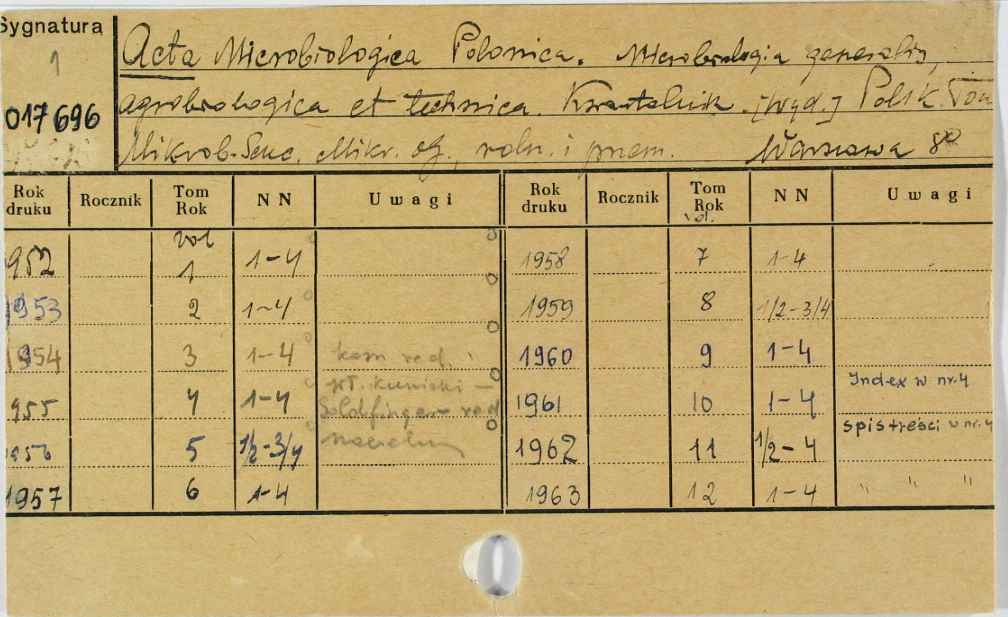 Sygnatura
1
017696
Acta Microbiologica Polonica. Microbiologia generalis,
agrobiologica et technica. Kwartalnik. [Wyd.] Polsk. Tow
Mikrob. Mikr. og., roln. i przem. Warszawa 8°
Rok druku Rocznik Tom Rok NN Uwagi Rok druku Rocznik Tom Rok NN Uwagi
vol vol.
952 1 1-4 1958 7 1-4
1953 2 1-4 1959 8 1/2-3/4
1954 3 1-4 kom red. i 1960 9 1-4
955 4 1-4 Kunicki - Goldfinger red 1961 10 1-4 Index w nr. 4
956 5 1/2-3/4 naczelny 1962 11 1/2-4 spis treści w nr. 4
1957 6 1-4 1963 12 1-4 " " "